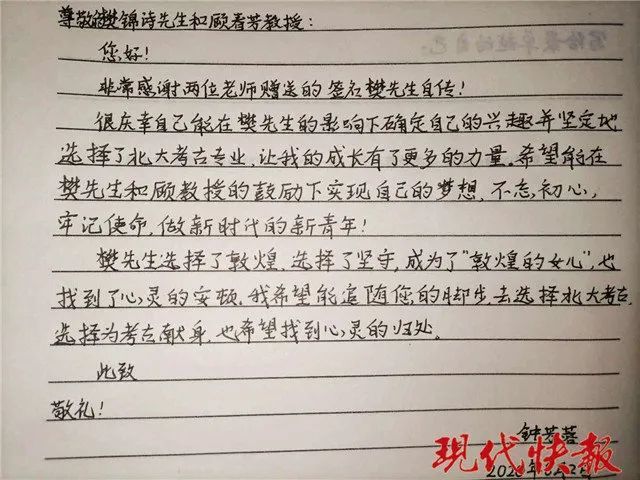 尊敬的樊锦诗先生和顾春芳教授：
您好！
非常感谢两位老师赠送的签名樊先生自传！
很庆幸自己能在樊先生的影响下确定自己的兴趣并坚定地
选择了北大考古专业，让我的成长有了更多的力量。希望能在
樊先生和顾教授的鼓励下实现自己的梦想，不忘初心，
牢记使命，做新时代的新青年！
樊先生选择了敦煌，选择了坚守，成为了“敦煌的女儿”，也
找到了心灵的安顿。我希望能追随您的脚步，去选择北大考古，
选择为考古献身，也希望找到心灵的归处。
此致
敬礼！
钟芳蓉
现代快报